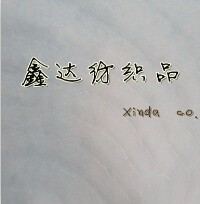 鑫达纺织品
Xinda co.